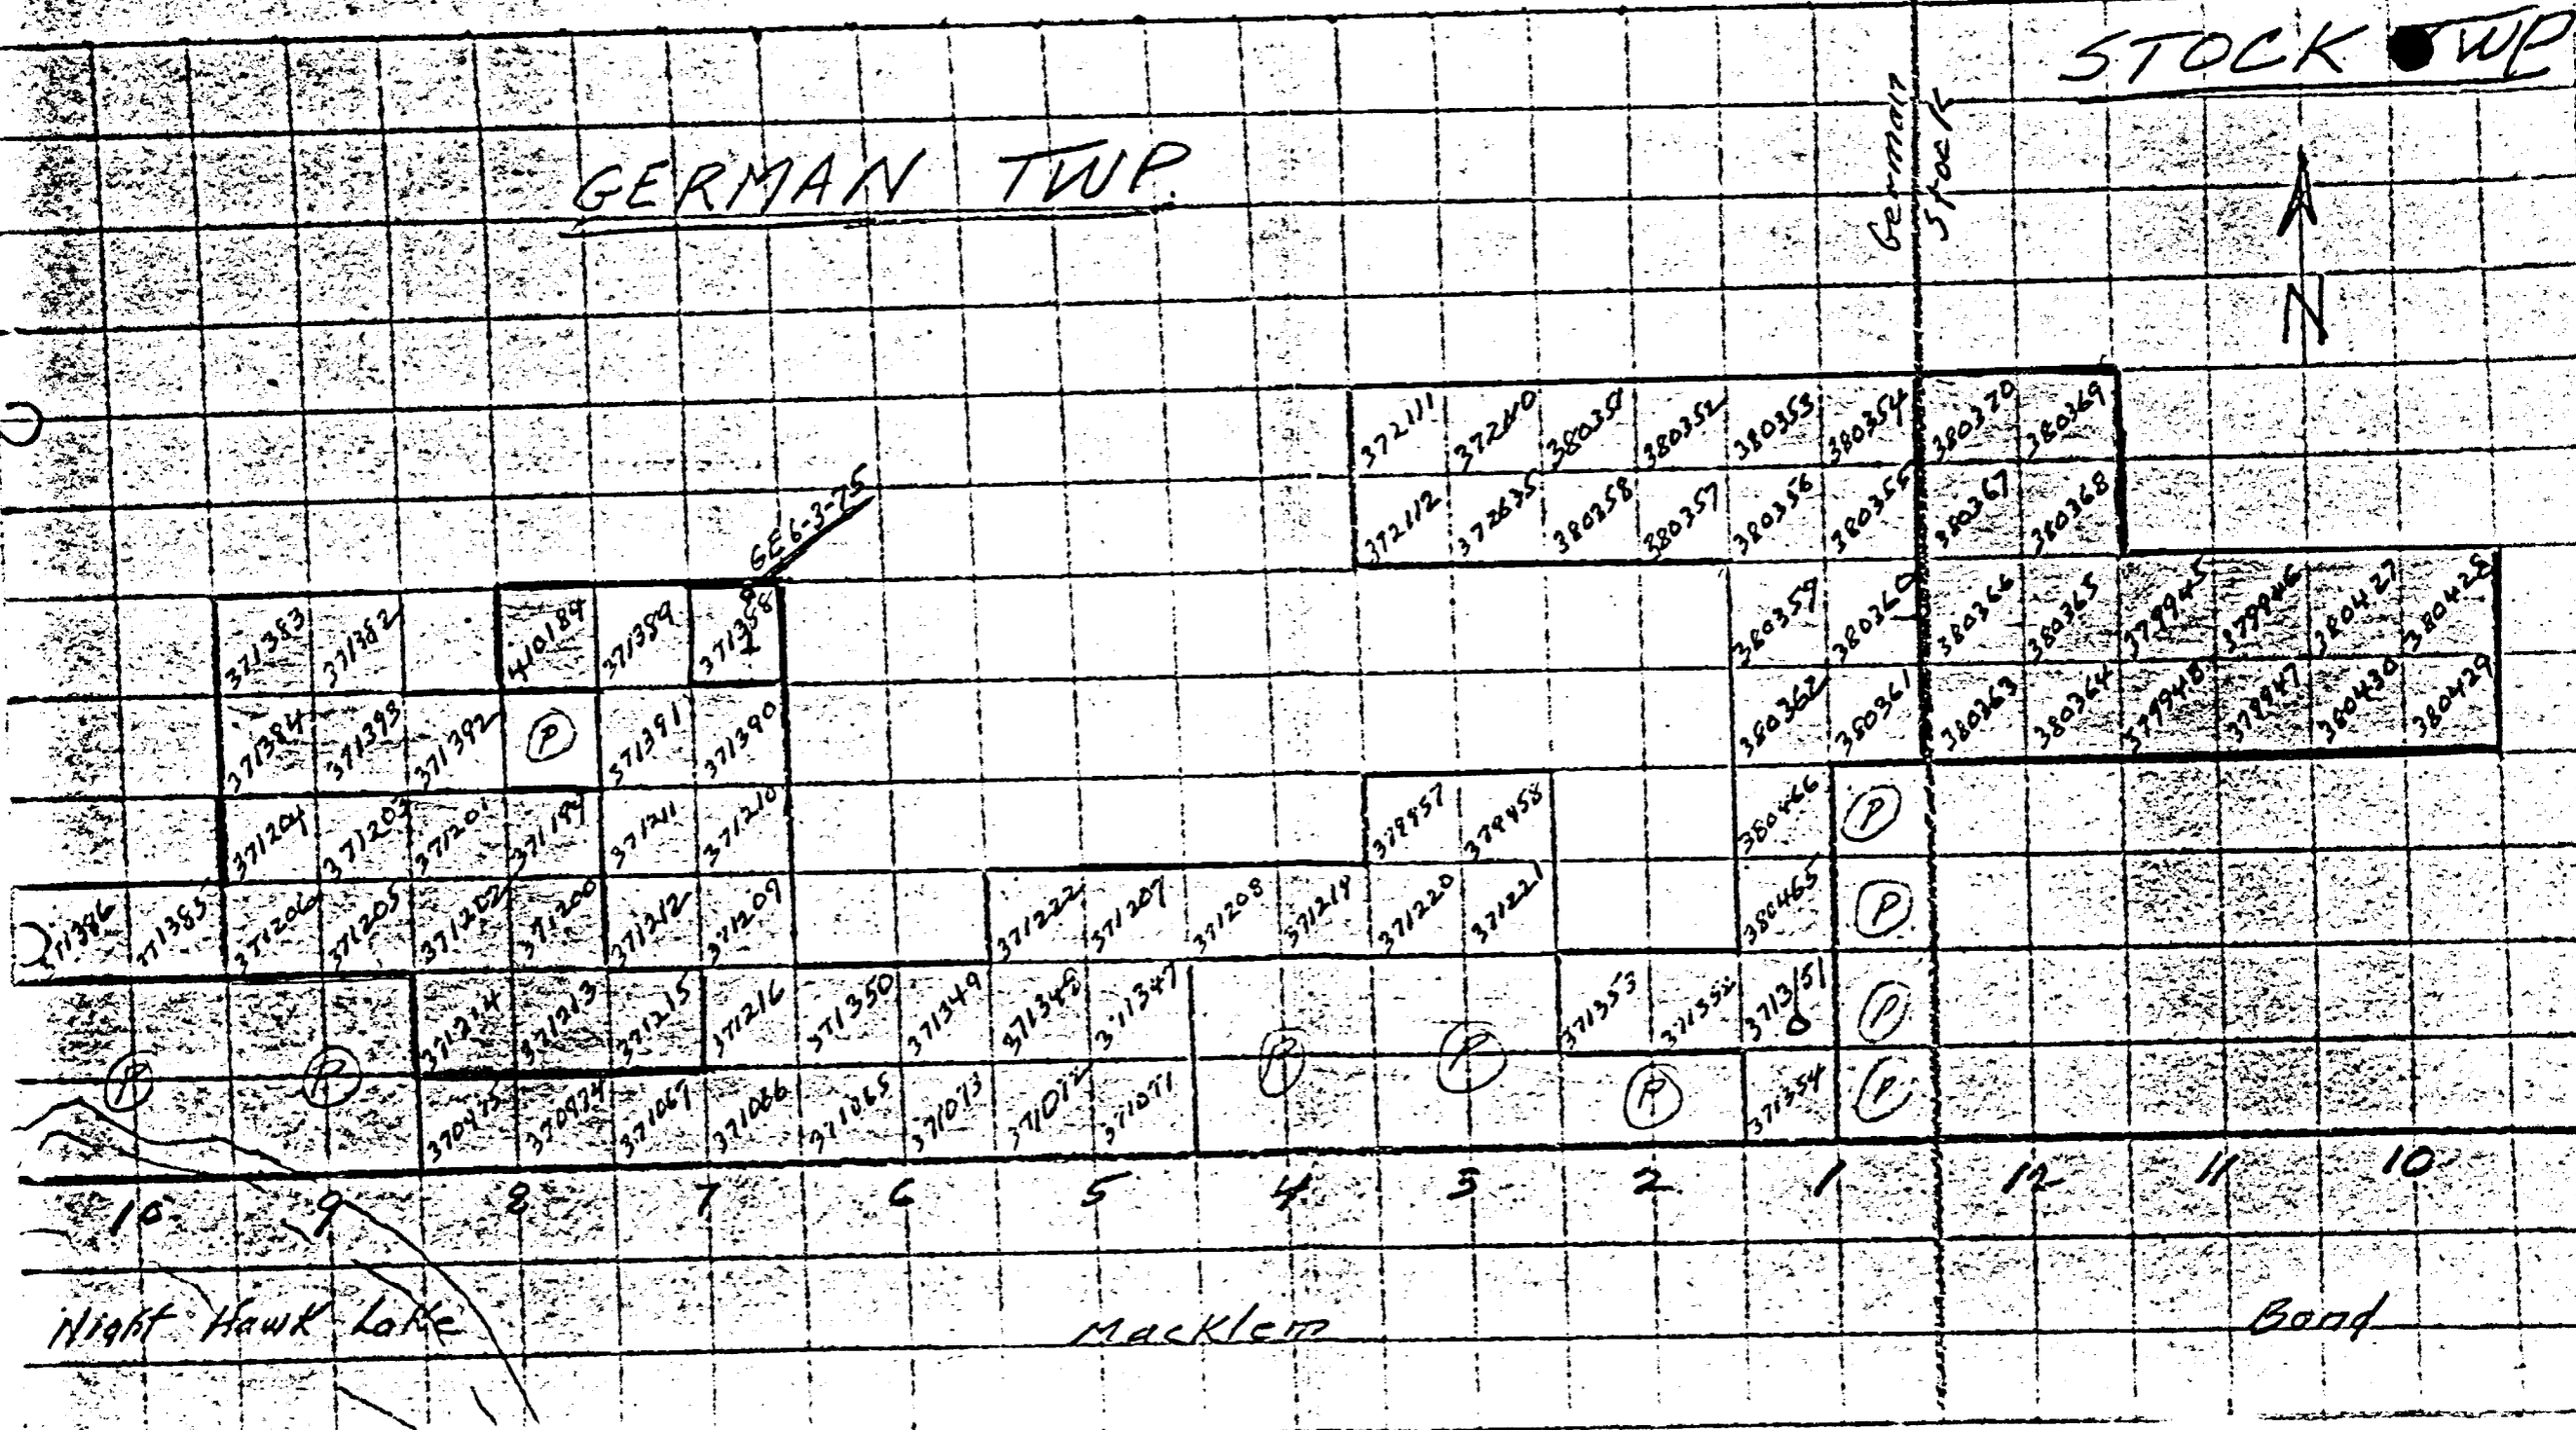 STOCK TWP
German
Stock
GERMAN TWP.
N
372111 372640 380351 380352 380353 380354 380370 380369
372112 372635 380358 380357 380356 380355 380367 380368
GE6-3-75
371383 371382 410184 371389 371388 380359 380360 380366 380365 379945 379946 380427 380428
371384 371393 371392 P 371391 371390 380362 380361 380363 380364 379948 379947 380430 380429
371204 371203 371201 371199 371211 371210 379457 379458 380466 P
371386 371385 371206 371205 371202 371200 371212 371209 371222 371207 371208 371219 371220 371221 380465 P
371214 371213 371215 371216 371350 371349 371348 371347 371353 371352 371351 P
P P P P P P
370975 370974 371067 371066 371065 371073 371072 371071 371354
10 9 8 7 6 5 4 3 2 1 12 11 10
Night Hawk Lake Macklem Bond